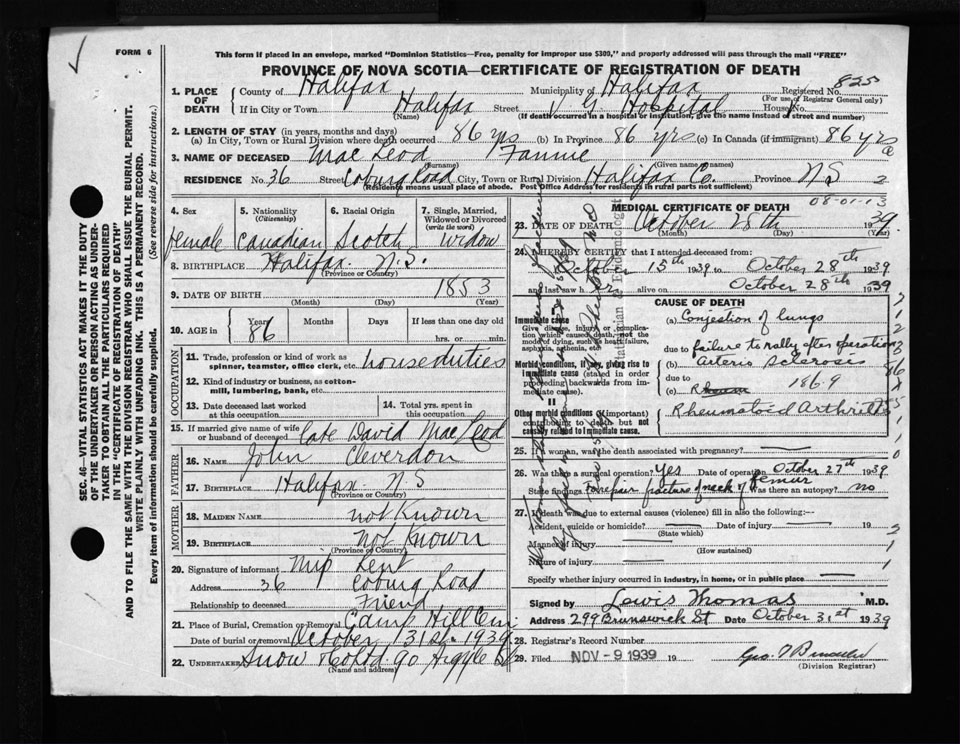 FORM 6
This form if placed in an envelope, marked "Dominion Statistics—Free, penalty for improper use $300," and properly addressed will pass through the mail "FREE"
PROVINCE OF NOVA SCOTIA—CERTIFICATE OF REGISTRATION OF DEATH
SEC. 46—VITAL STATISTICS ACT MAKES IT THE DUTY
OF THE UNDERTAKER OR PERSON ACTING AS UNDER-
TAKER TO OBTAIN ALL THE PARTICULARS REQUIRED
IN THE "CERTIFICATE OF REGISTRATION OF DEATH"
AND TO FILE THE SAME WITH THE DIVISION REGISTRAR WHO SHALL ISSUE THE BURIAL PERMIT.
WRITE PLAINLY WITH UNFADING INK. THIS IS A PERMANENT RECORD.
Every item of information should be carefully supplied. (See reverse side for instructions.)
1. PLACE OF DEATH County of Halifax Municipality of Halifax Registered No. 825
(For use of Registrar General only)
If in City or Town Halifax Street V. G. Hospital House No.
(Name) (If death occurred in a hospital or institution, give the name instead of street and number)
2. LENGTH OF STAY (in years, months and days)
(a) In City, Town or Rural Division where death occurred 86 yrs (b) In Province 86 yrs (c) In Canada (if immigrant) 86 yrs
3. NAME OF DECEASED MacLeod Fannie
(Surname) (Given name or names)
RESIDENCE No. 36 Street Coburg Road City, Town or Rural Division Halifax Co. Province N S 2
(Residence means usual place of abode. Post Office Address for residents in rural parts not sufficient)
4. Sex 5. Nationality (Citizenship) 6. Racial Origin 7. Single, Married, Widowed or Divorced (write the word)
female Canadian Scotch widow
8. BIRTHPLACE Halifax N.S.
(Province or Country)
9. DATE OF BIRTH 1853
(Month) (Day) (Year)
10. AGE in Years Months Days If less than one day old
86 hrs. or min.
OCCUPATION
11. Trade, profession or kind of work as spinner, teamster, office clerk, etc. house duties
12. Kind of industry or business, as cotton-mill, lumbering, bank, etc.
13. Date deceased last worked at this occupation 14. Total yrs. spent in this occupation
15. If married give name of wife or husband of deceased Late David MacLeod
FATHER
16. Name John Cleverdon
17. Birthplace Halifax N S
(Province or Country)
MOTHER
18. Maiden Name not Known
19. Birthplace not Known
(Province or Country)
20. Signature of informant Kent
Address 36 Coburg Road
Relationship to deceased Friend
21. Place of Burial, Cremation or Removal Camp Hill Cem
Date of burial or removal October 31st. 1939
22. Undertaker Snow & Co Ltd 90 Argyle St
(Name and address)
MEDICAL CERTIFICATE OF DEATH
08-01-13
23. DATE OF DEATH October 28th 1939
(Month) (Day) (Year)
24. I HEREBY CERTIFY that I attended deceased from:
October 15th 1939 to October 28th 1939
and last saw her alive on October 28th 1939
CAUSE OF DEATH
Immediate cause
Give disease, injury or complication which caused death, not the mode of dying, such as heart failure, asphyxia, asthenia, etc.
(a) Conjestion of lungs
due to failure to rally after operation
Morbid conditions, if any, giving rise to immediate cause (stated in order proceeding backwards from immediate cause).
(b) Arterio Sclerosis
due to
(c) 186.9
II
Other morbid conditions (if important) contributing to death but not causally related to immediate cause.
Rheumatoid Arthritis
25. If a woman, was the death associated with pregnancy?
26. Was there a surgical operation? Yes Date of operation October 27th 1939
State findings To repair fracture of neck of femur Was there an autopsy? no
27. If death was due to external causes (violence) fill in also the following:—
Accident, suicide or homicide? Date of injury 19
(State which)
Manner of injury
(How sustained)
Nature of injury
Specify whether injury occurred in industry, in home, or in public place
Signed by Lewis Thomas M.D.
Address 299 Brunswick St Date October 31st 1939
28. Registrar's Record Number
29. Filed NOV - 9 1939 19
(Division Registrar)